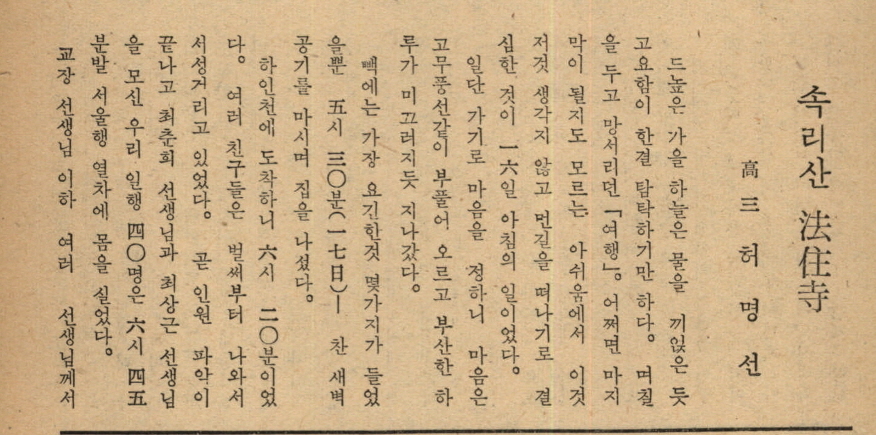 속리산 法住寺
高三 허명선
드높은 가을 하늘은 물을 끼얹은 듯
고요함이 한결 탐탁하기만 하다. 며칠
을 두고 망서리던 「여행」. 어쩌면 마지
막이 될지도 모르는 아쉬움에서 이것
저것 생각지 않고 먼길을 떠나기로 결
심한 것이 一六일 아침의 일이었다.
일단 가기로 마음을 정하니 마음은
고무풍선같이 부풀어 오르고 부산한 하
루가 미끄러지듯 지나갔다.
빽에는 가장 요긴한것 몇가지가 들었
을뿐 五시 三〇분(一七日)― 찬 새벽
공기를 마시며 집을 나섰다.
하인천에 도착하니 六시 二〇분이었
다. 여러 친구들은 벌써부터 나와서
서성거리고 있었다. 곧 인원 파악이
끝나고 최춘희 선생님과 최상근 선생님
을 모신 우리 일행 四〇명은 六시 四五
분발 서울행 열차에 몸을 실었다.
교장 선생님 이하 여러 선생님께서